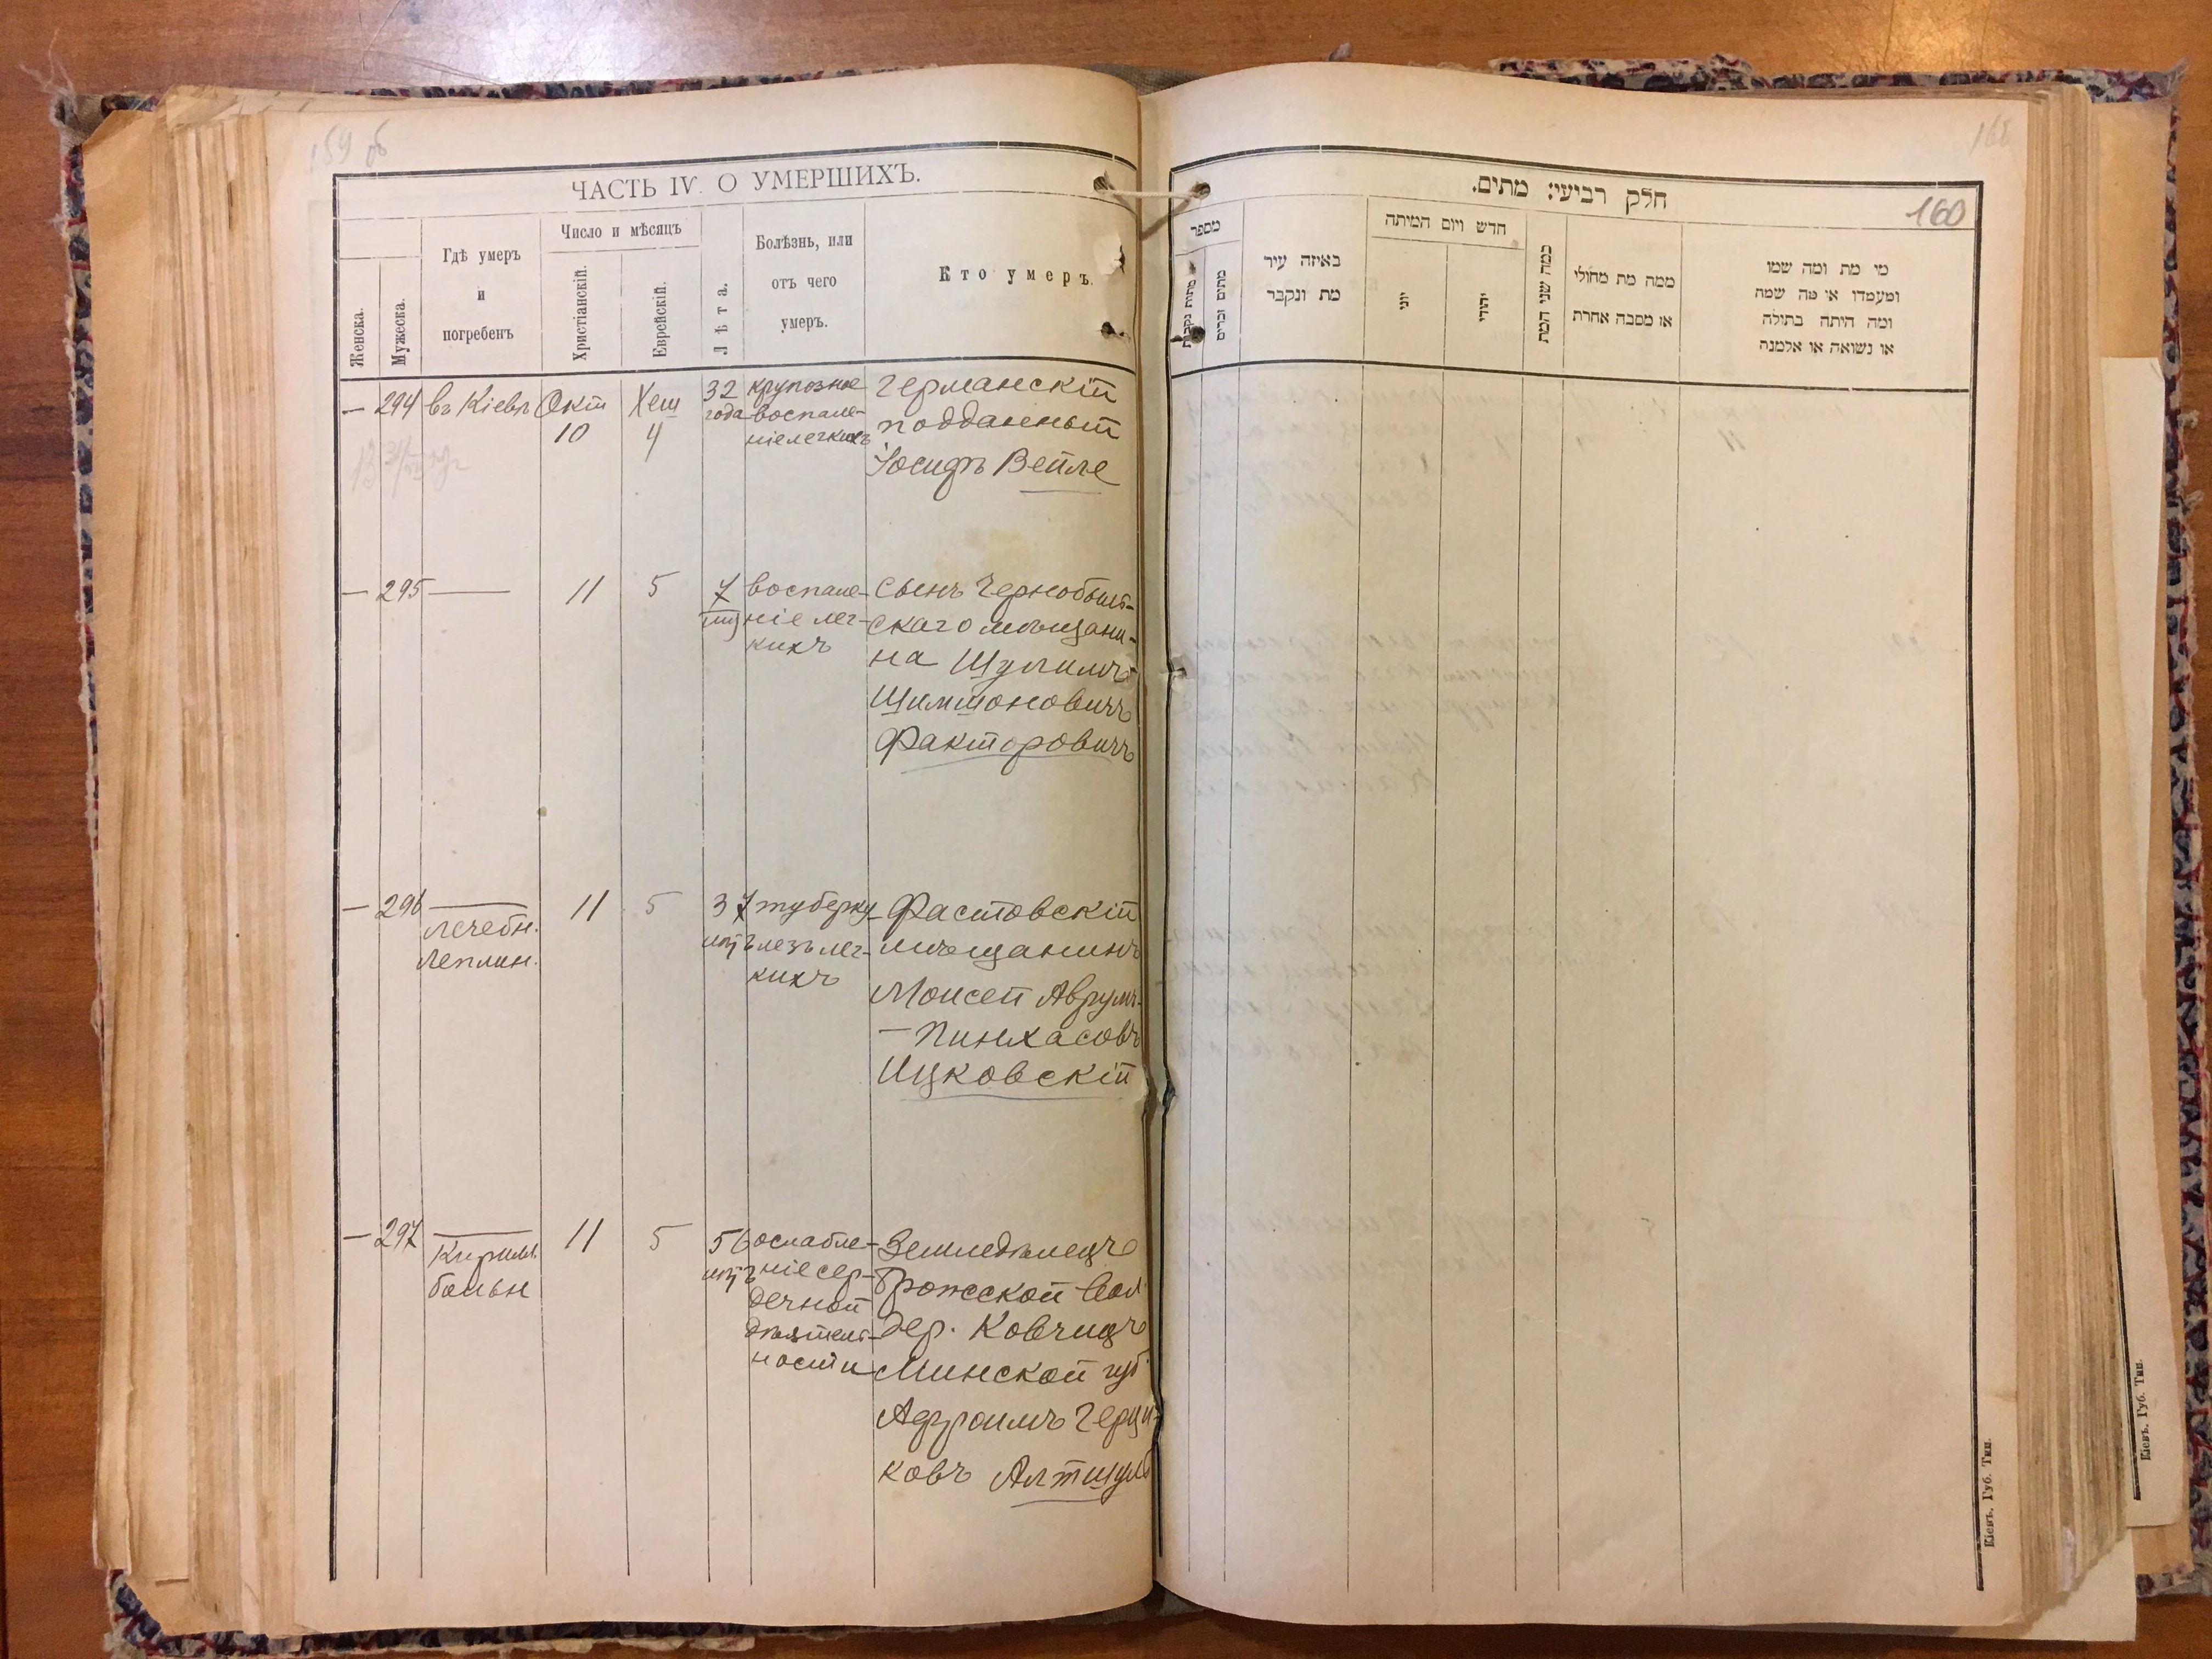 159 об
ЧАСТЬ IV. О УМЕРШИХЪ.
Женска.
Мужеска.
Гдѣ умеръ
и
погребенъ
Число и мѣсяцъ
Христіанскій.
Еврейскій.
Лѣта.
Болѣзнь, или
отъ чего
умеръ.
Кто умеръ.
— 294 въ Кіевѣ Окт 10 Хеш 4
32 года
крупозное
воспале-
ніе легкихъ
Германскій
подданный
Іосифъ Вейле
— 295 — 11 5
7 лѣтъ
воспале-
ніе лег-
кихъ
Сынъ Чернобыль-
скаго мѣщани-
на Шулимъ
Шимшоновичъ
Факторовичъ
— 296 —
лечебн.
Леплин.
11 5
37 лѣтъ
туберку-
лезъ лег-
кихъ
Фастовскій
мѣщанинъ
Моисей Аврумъ-
-Пинхасовъ
Ицковскій
— 297 —
Кирилл.
больн
11 5
56 лѣтъ
ослабле-
ніе сер-
дечной
дѣятель-
ности
Земледѣлецъ
Брожской вол
дер. Ковчицъ
Минской губ
Афроимъ Герш-
ковъ Алтшулъ
חלק רביעי: מתים.
160
מספר
מתות נקבות
מתים זכרים
באיזה עיר
מת ונקבר
חדש ויום המיתה
יוני
יהודי
כמה שני המת
ממה מת מחולי
או מסבה אחרת
מי מת ומה שמו
ומעמדו או מה שמה
ומה היתה בתולה
או נשואה או אלמנה
Кіевъ. Губ. Тип.
Кіевъ. Губ. Тип.